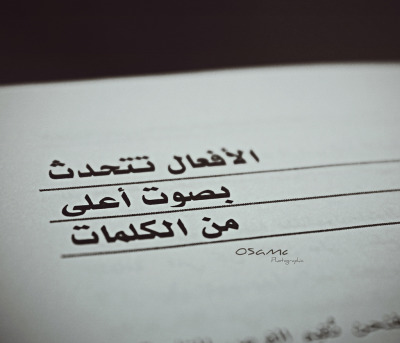 الأفعال تتحدث
بصوت أعلى
من الكلمات
OSaMa
Photographer